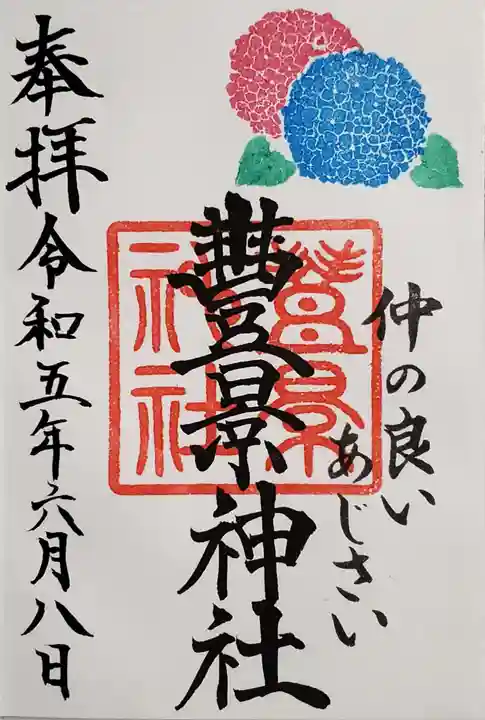 仲の良い
あじさい
豊景神社
豊景神社
奉拝令和五年六月八日